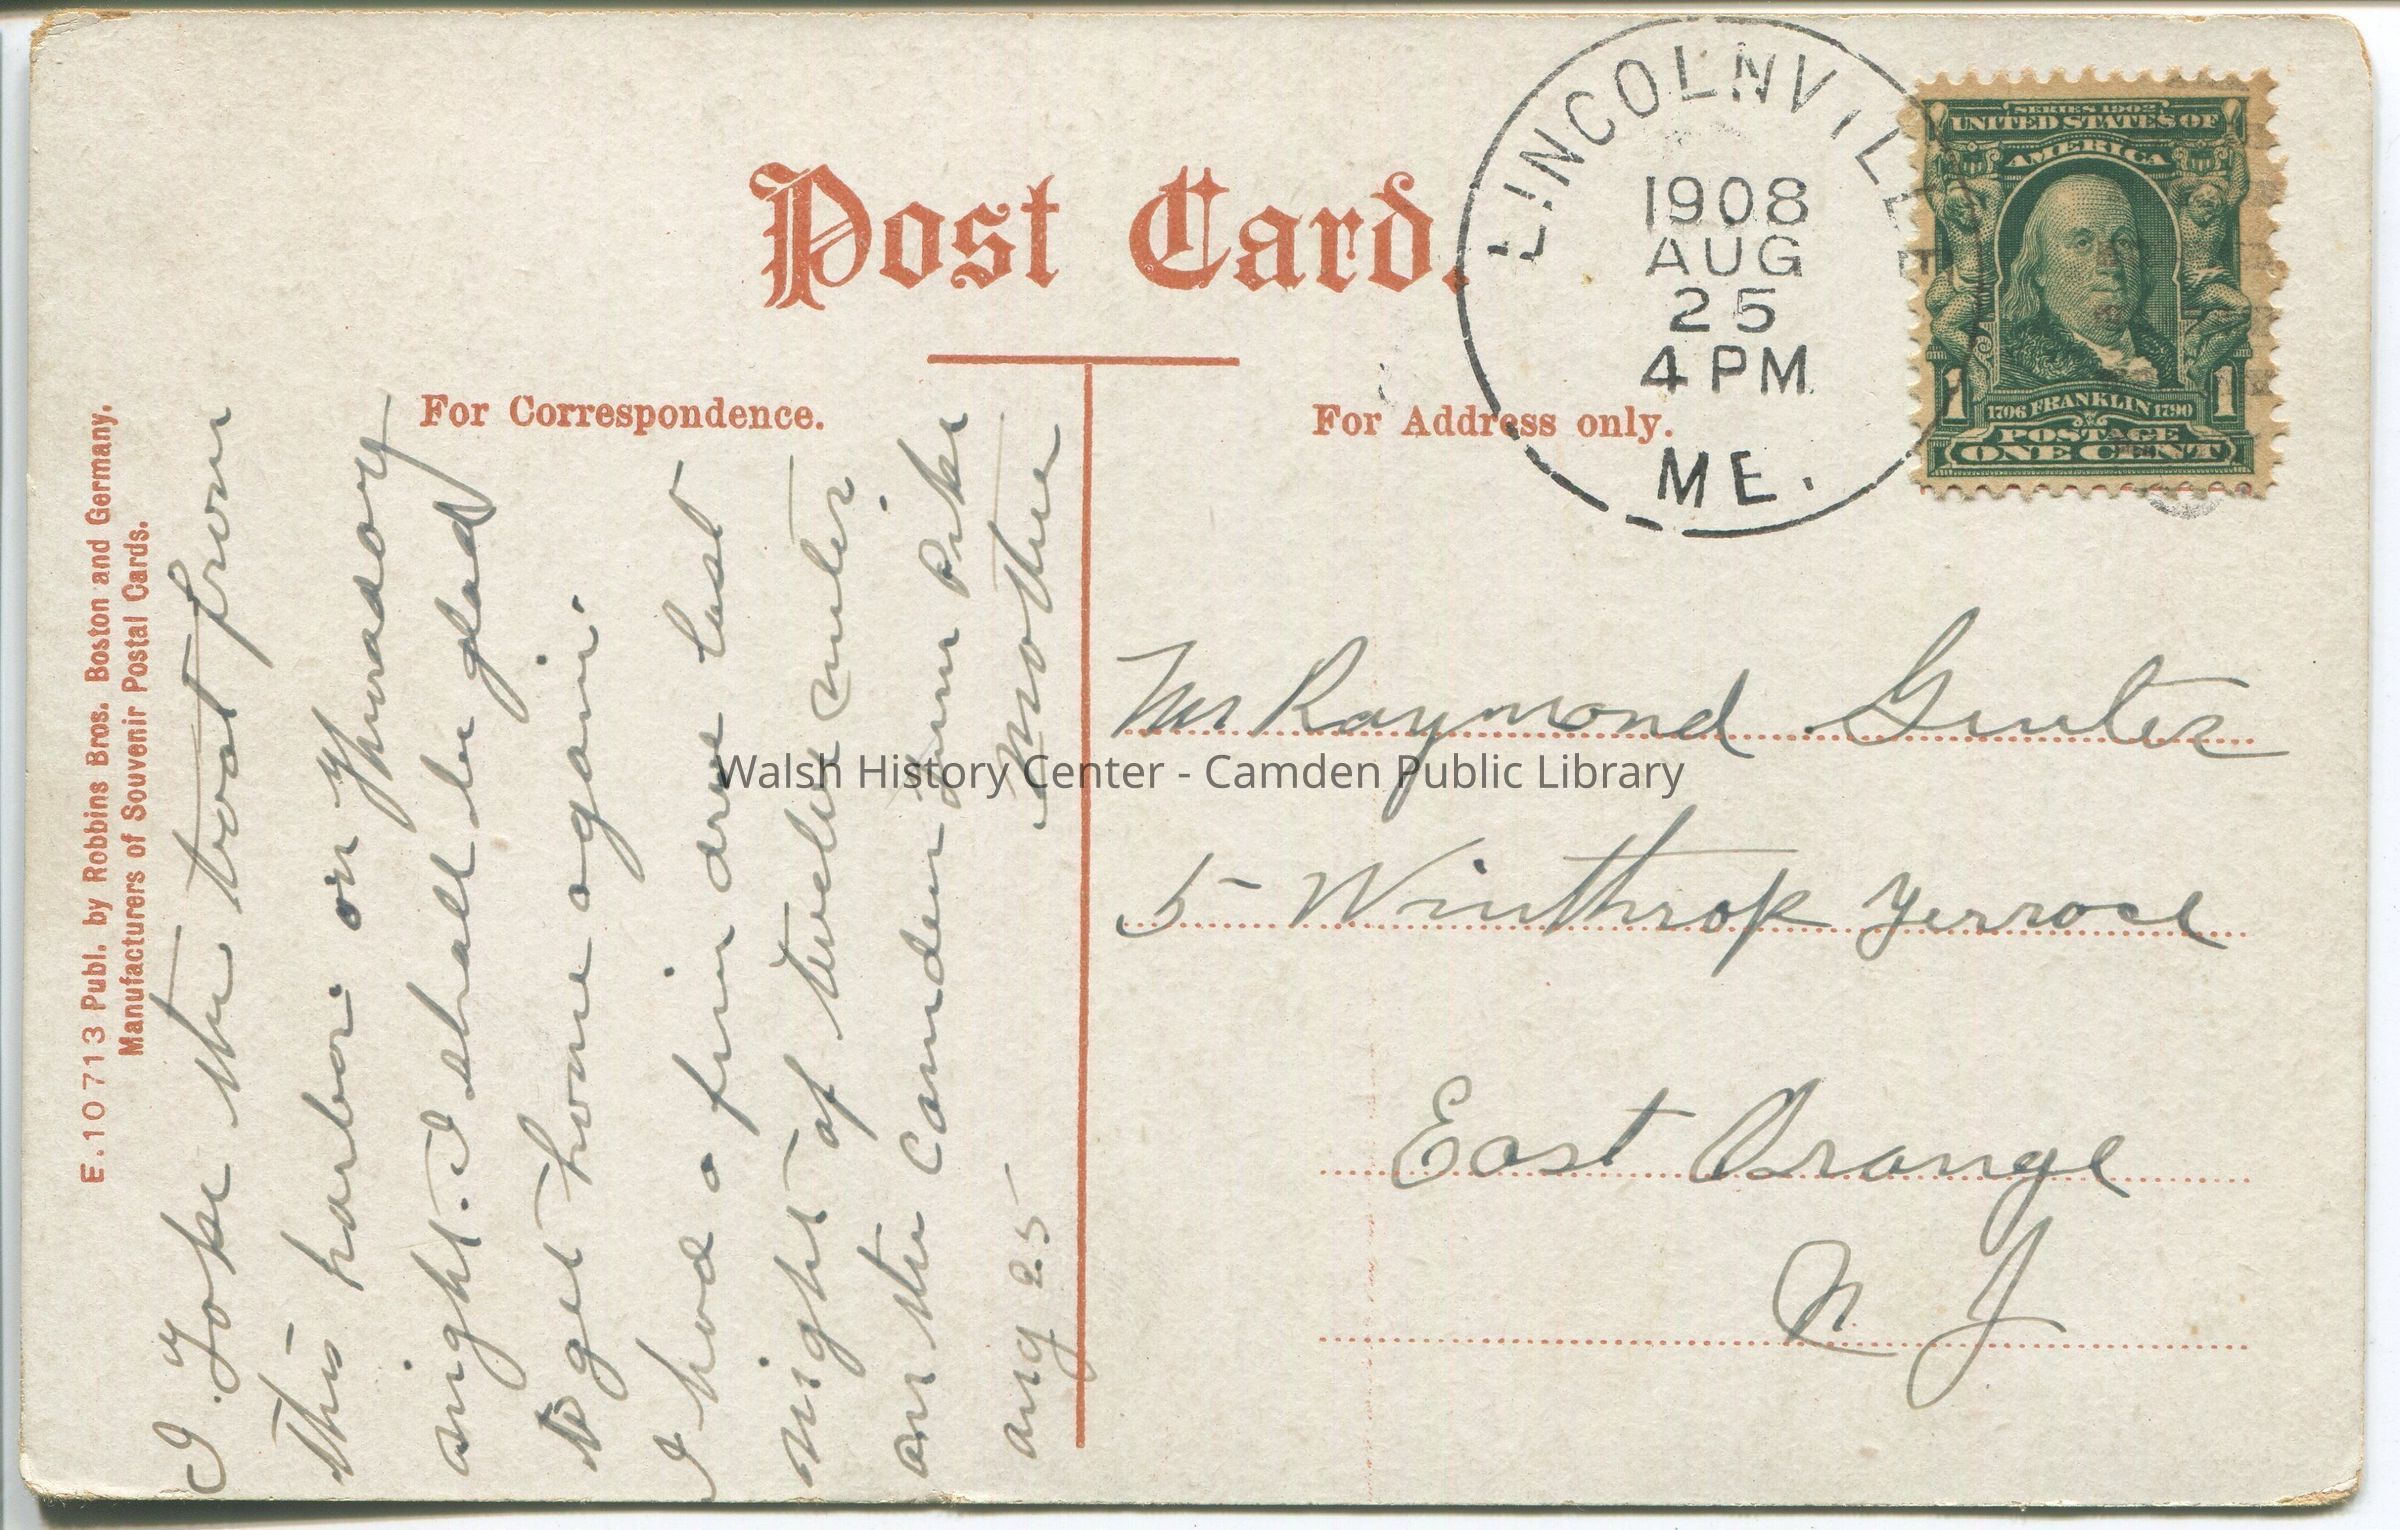 Post Card.
For Correspondence.
For Address only.
LINCOLNVILLE
1908
AUG
25
4 PM
ME.
SERIES 1902
UNITED STATES OF
AMERICA
1706 FRANKLIN 1790
1 1
POSTAGE
ONE CENT
E.10713 Publ. by Robbins Bros. Boston and Germany.
Manufacturers of Souvenir Postal Cards.
I Take the boat from
this harbor on Thursday
night. I shall be glad
to get home again.
I had a fine drive last
night of twelve miles
on the Camden Turn Pike
Aug 25 Mother
Mr Raymond
5 Winthrop Terrace
East Orange
N J
Walsh History Center - Camden Public Library